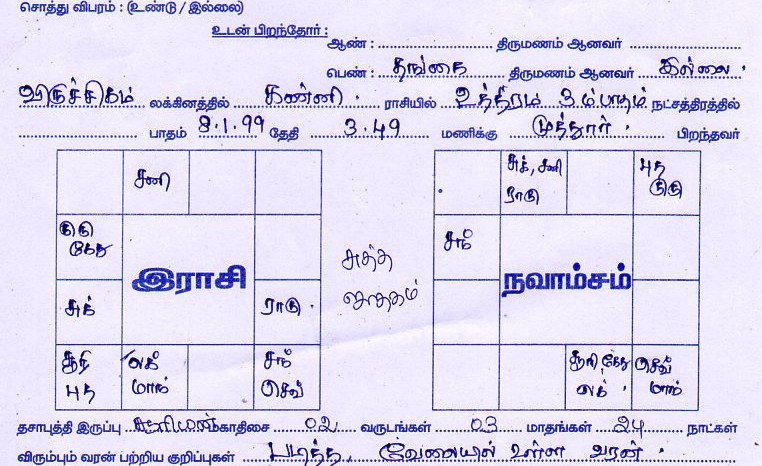 சொத்து விபரம் : (உண்டு / இல்லை)
உடன் பிறந்தோர் :
ஆண் : திருமணம் ஆனவர்
பெண் : தங்கை திருமணம் ஆனவர் இல்லை.
விருச்சிகம் லக்கினத்தில் கன்னி. ராசியில் உத்திரம் 3ம் பாதம் நட்சத்திரத்தில்
பாதம் 8.1.99 தேதி 3.49 மணிக்கு முத்தூர். பிறந்தவர்
சனி
குரு
கேது
இராசி
சுக்
ராகு.
சூரி
புத
லக்
மாந்
சந்
செவ்
சுத்த
ஜாதகம்
சுக், சனி
ராகு
புத
குரு
சந்
நவாம்சம்
சூரி, கேது
லக்
செவ்
மாந்
தசாபுத்தி இருப்பு சூரியன் மகாதிசை 02 வருடங்கள் 03 மாதங்கள் 24 நாட்கள்
விரும்பும் வரன் பற்றிய குறிப்புகள் படித்த, வேலையில் உள்ள வரன்.